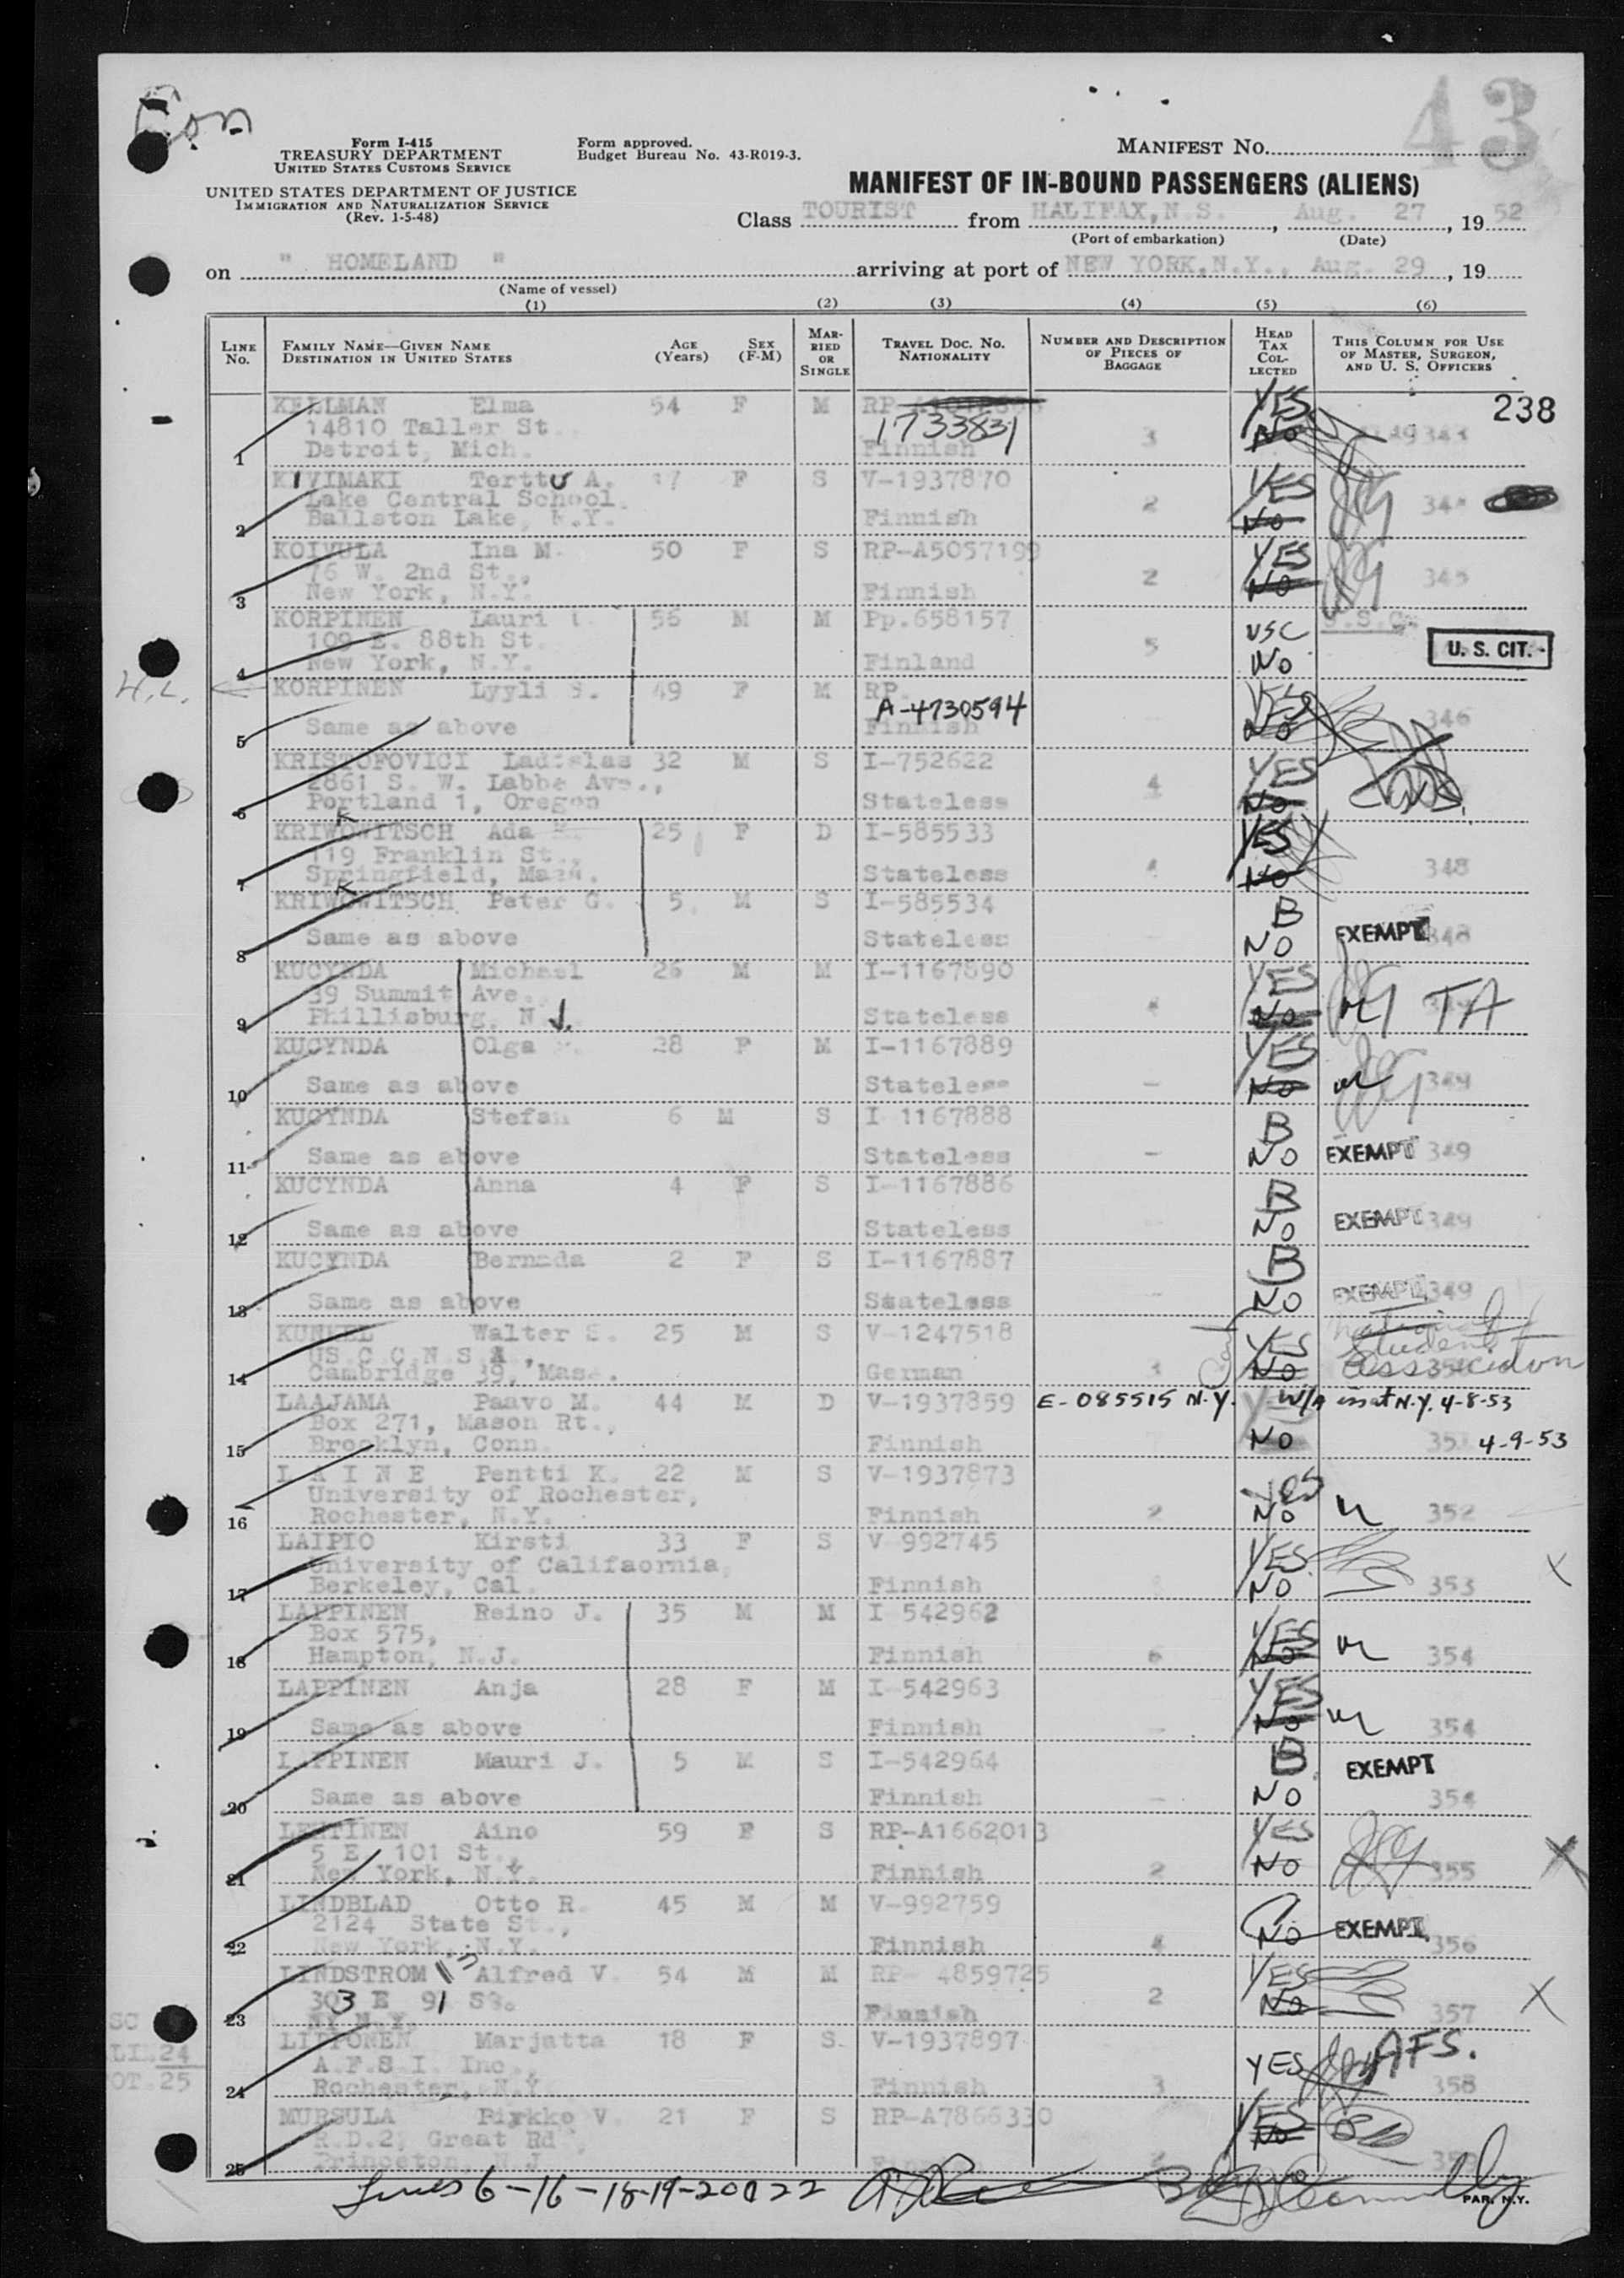 43
Form I-415
TREASURY DEPARTMENT
UNITED STATES CUSTOMS SERVICE
UNITED STATES DEPARTMENT OF JUSTICE
IMMIGRATION AND NATURALIZATION SERVICE
(Rev. 1-5-48)
Form approved.
Budget Bureau No. 43-R019-3.
MANIFEST NO.
MANIFEST OF IN-BOUND PASSENGERS (ALIENS)
Class TOURIST from HALIFAX, N.S., Aug. 27, 1952
(Port of embarkation) (Date)
on " HOMELAND " arriving at port of NEW YORK, N.Y., Aug. 29, 19
(Name of vessel)
(1) (2) (3) (4) (5) (6)
LINE No. FAMILY NAME—GIVEN NAME DESTINATION IN UNITED STATES AGE (Years) SEX (F-M) MARRIED OR SINGLE TRAVEL DOC. NO. NATIONALITY NUMBER AND DESCRIPTION OF PIECES OF BAGGAGE HEAD TAX COLLECTED THIS COLUMN FOR USE OF MASTER, SURGEON, AND U. S. OFFICERS
238
KELLMAN Elma 54 F M RP YES
14810 Taller St. 1733831 3 No
1 Detroit, Mich. Finnish
KIVIMAKI Terttu A. 17 F S V-1937870 YES
Lake Central School 2
2 Ballston Lake, N.Y. Finnish No
KOIVULA Ina M. 50 F S RP-A5057199 YES
76 W. 2nd St., 2 345
3 New York, N.Y. Finnish No
KORPINEN Lauri 56 M M Pp.658157 USC U.S.C.
109 E. 88th St. 5 U. S. CIT.
4 New York, N.Y. Finland No
H.L. KORPINEN Lyyli S. 49 F M RP. YES
A-4730594 346
5 Same as above Finnish No
KRISTOFOVICI Ladislas 32 M S I-752622 YES
2861 S. W. Labbe Ave., 4
6 Portland 1, Oregon Stateless No
KRIWOWITSCH Ada 25 F D I-585533 YES
119 Franklin St., 4 348
7 Springfield, Mass. Stateless No
KRIWOWITSCH Peter G. 5 M S I-585534 B
EXEMPT 348
8 Same as above Stateless NO
KUCYNDA Michael 26 M M I-1167890 YES
39 Summit Ave. 4 TA
9 Phillisburg, N.J. Stateless No
KUCYNDA Olga 28 F M I-1167889 YES
10 Same as above Stateless — No 349
KUCYNDA Stefan 6 M S I 1167888 B
11 Same as above Stateless — NO EXEMPT 349
KUCYNDA Anna 4 F S I-1167886 B
12 Same as above Stateless NO EXEMPT 349
KUCYNDA Bernada 2 F S I-1167887 B
13 Same as above Saateless NO EXEMPT 349
KUNKEL Walter S. 25 M S V-1247518 YES National Student Association
14 Cambridge 39, Mass. German No
LAAJAMA Paavo M. 44 M D V-1937859 E-085515 N.Y. W/A N.Y. 4-8-53
Box 271, Mason Rt.,
15 Brooklyn, Conn. Finnish NO 4-9-53
L A I N E Pentti K. 22 M S V-1937873 YES
University of Rochester,
16 Rochester, N.Y. Finnish 2 NO 352
LAIPIO Kirsti 33 F S V 992745 YES
University of Califaornia,
17 Berkeley, Cal. Finnish NO 353
LAPPINEN Reino J. 35 M M I 542962 YES
Box 575,
18 Hampton, N.J. Finnish 6 No 354
LAPPINEN Anja 28 F M I-542963 YES
19 Same as above Finnish — No 354
LAPPINEN Mauri J. 5 M S I-542964 B EXEMPT
20 Same as above Finnish — NO 354
LEHTINEN Aino 59 F S RP-A1662013 YES
5 E. 101 St.
21 New York, N.Y. Finnish 2 NO 355
LINDBLAD Otto R. 45 M M V-992759
2124 State St., EXEMPT
22 New York, N.Y. Finnish 4 No 356
LINDSTROM Alfred V. 54 M M RP- 4859725 YES
303 E 91 St. 2
23 NY N.Y. Finnish No 357
LIPPONEN Marjatta 18 F S V-1937897 AFS.
A.F.S.I. Inc., YES
24 Rochester, N.Y. Finnish 3 358
MURSULA Pirkko V. 21 F S RP-A7866330 YES
R.D.2, Great Rd No
25 Princeton, N.J.
SC
24
25
Lines 6-16-18-19-20 22
PAR. N.Y.